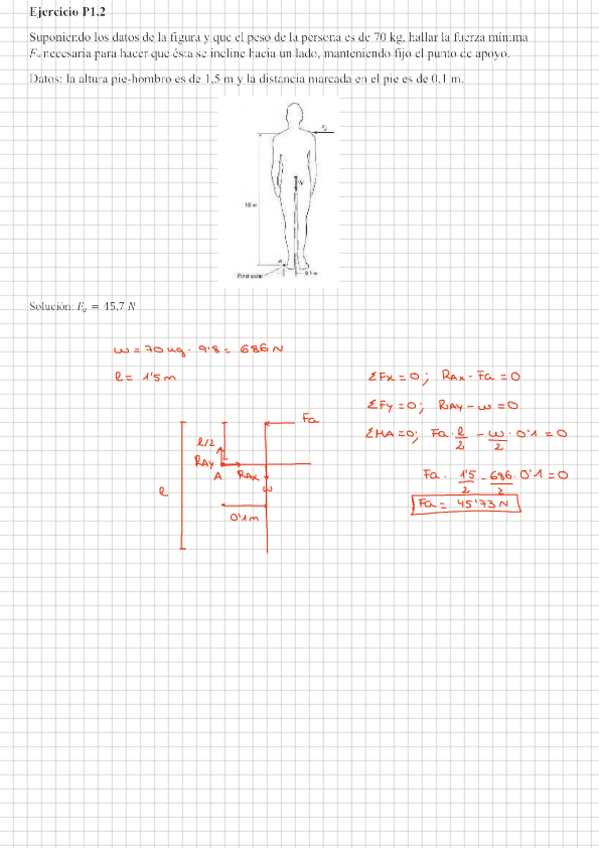 Ejercicio P1.2
Suponiendo los datos de la figura y que el peso de la persona es de 70 kg, hallar la fuerza mínima
Fa necesaria para hacer que ésta se incline hacia un lado, manteniendo fijo el punto de apoyo.
Datos: la altura pie-hombro es de 1,5 m y la distancia marcada en el pie es de 0,1 m.
Fa
W
A
0.1 m
Solución: Fa = 45,7 N
w = 70 kg · 9'8 = 686 N
l = 1'5 m
ΣFx = 0; RAx - Fa = 0
ΣFy = 0; RAy - w = 0
ΣMA = 0; Fa · l/2 - w/2 · 0'1 = 0
Fa · 1'5/2 - 686/2 · 0'1 = 0
Fa = 45'73 N
Fa
l/2
RAy
A
RAx
w
l
0'1m